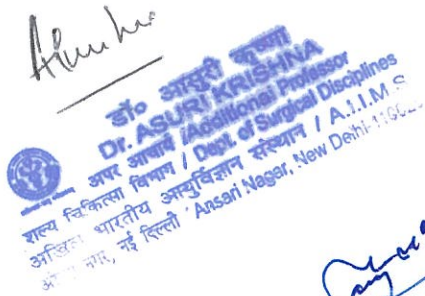 डॉ० आसुरी कृष्णा
Dr. ASURI KRISHNA
अपर आचार्य /Additional Professor
शल्य चिकित्सा विभाग / Dept. of Surgical Disciplines
अखिल भारतीय आयुर्विज्ञान संस्थान / A.I.I.M.S.
नगर, नई दिल्ली Ansari Nagar, New Delhi